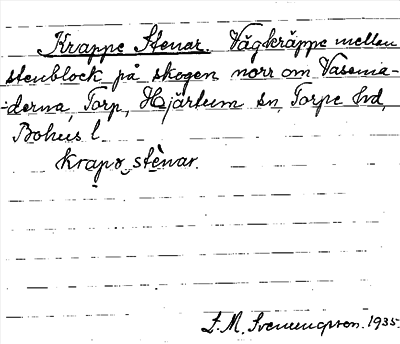 Krappe Stenar. Vägkräppe mellan
stenblock på skogen norr om Vasenia-
derna, Torp, Hjärtum sn, Torpe hd,
Bohus l.
krapə stènar.
L. M. Svenungsson. 1935.